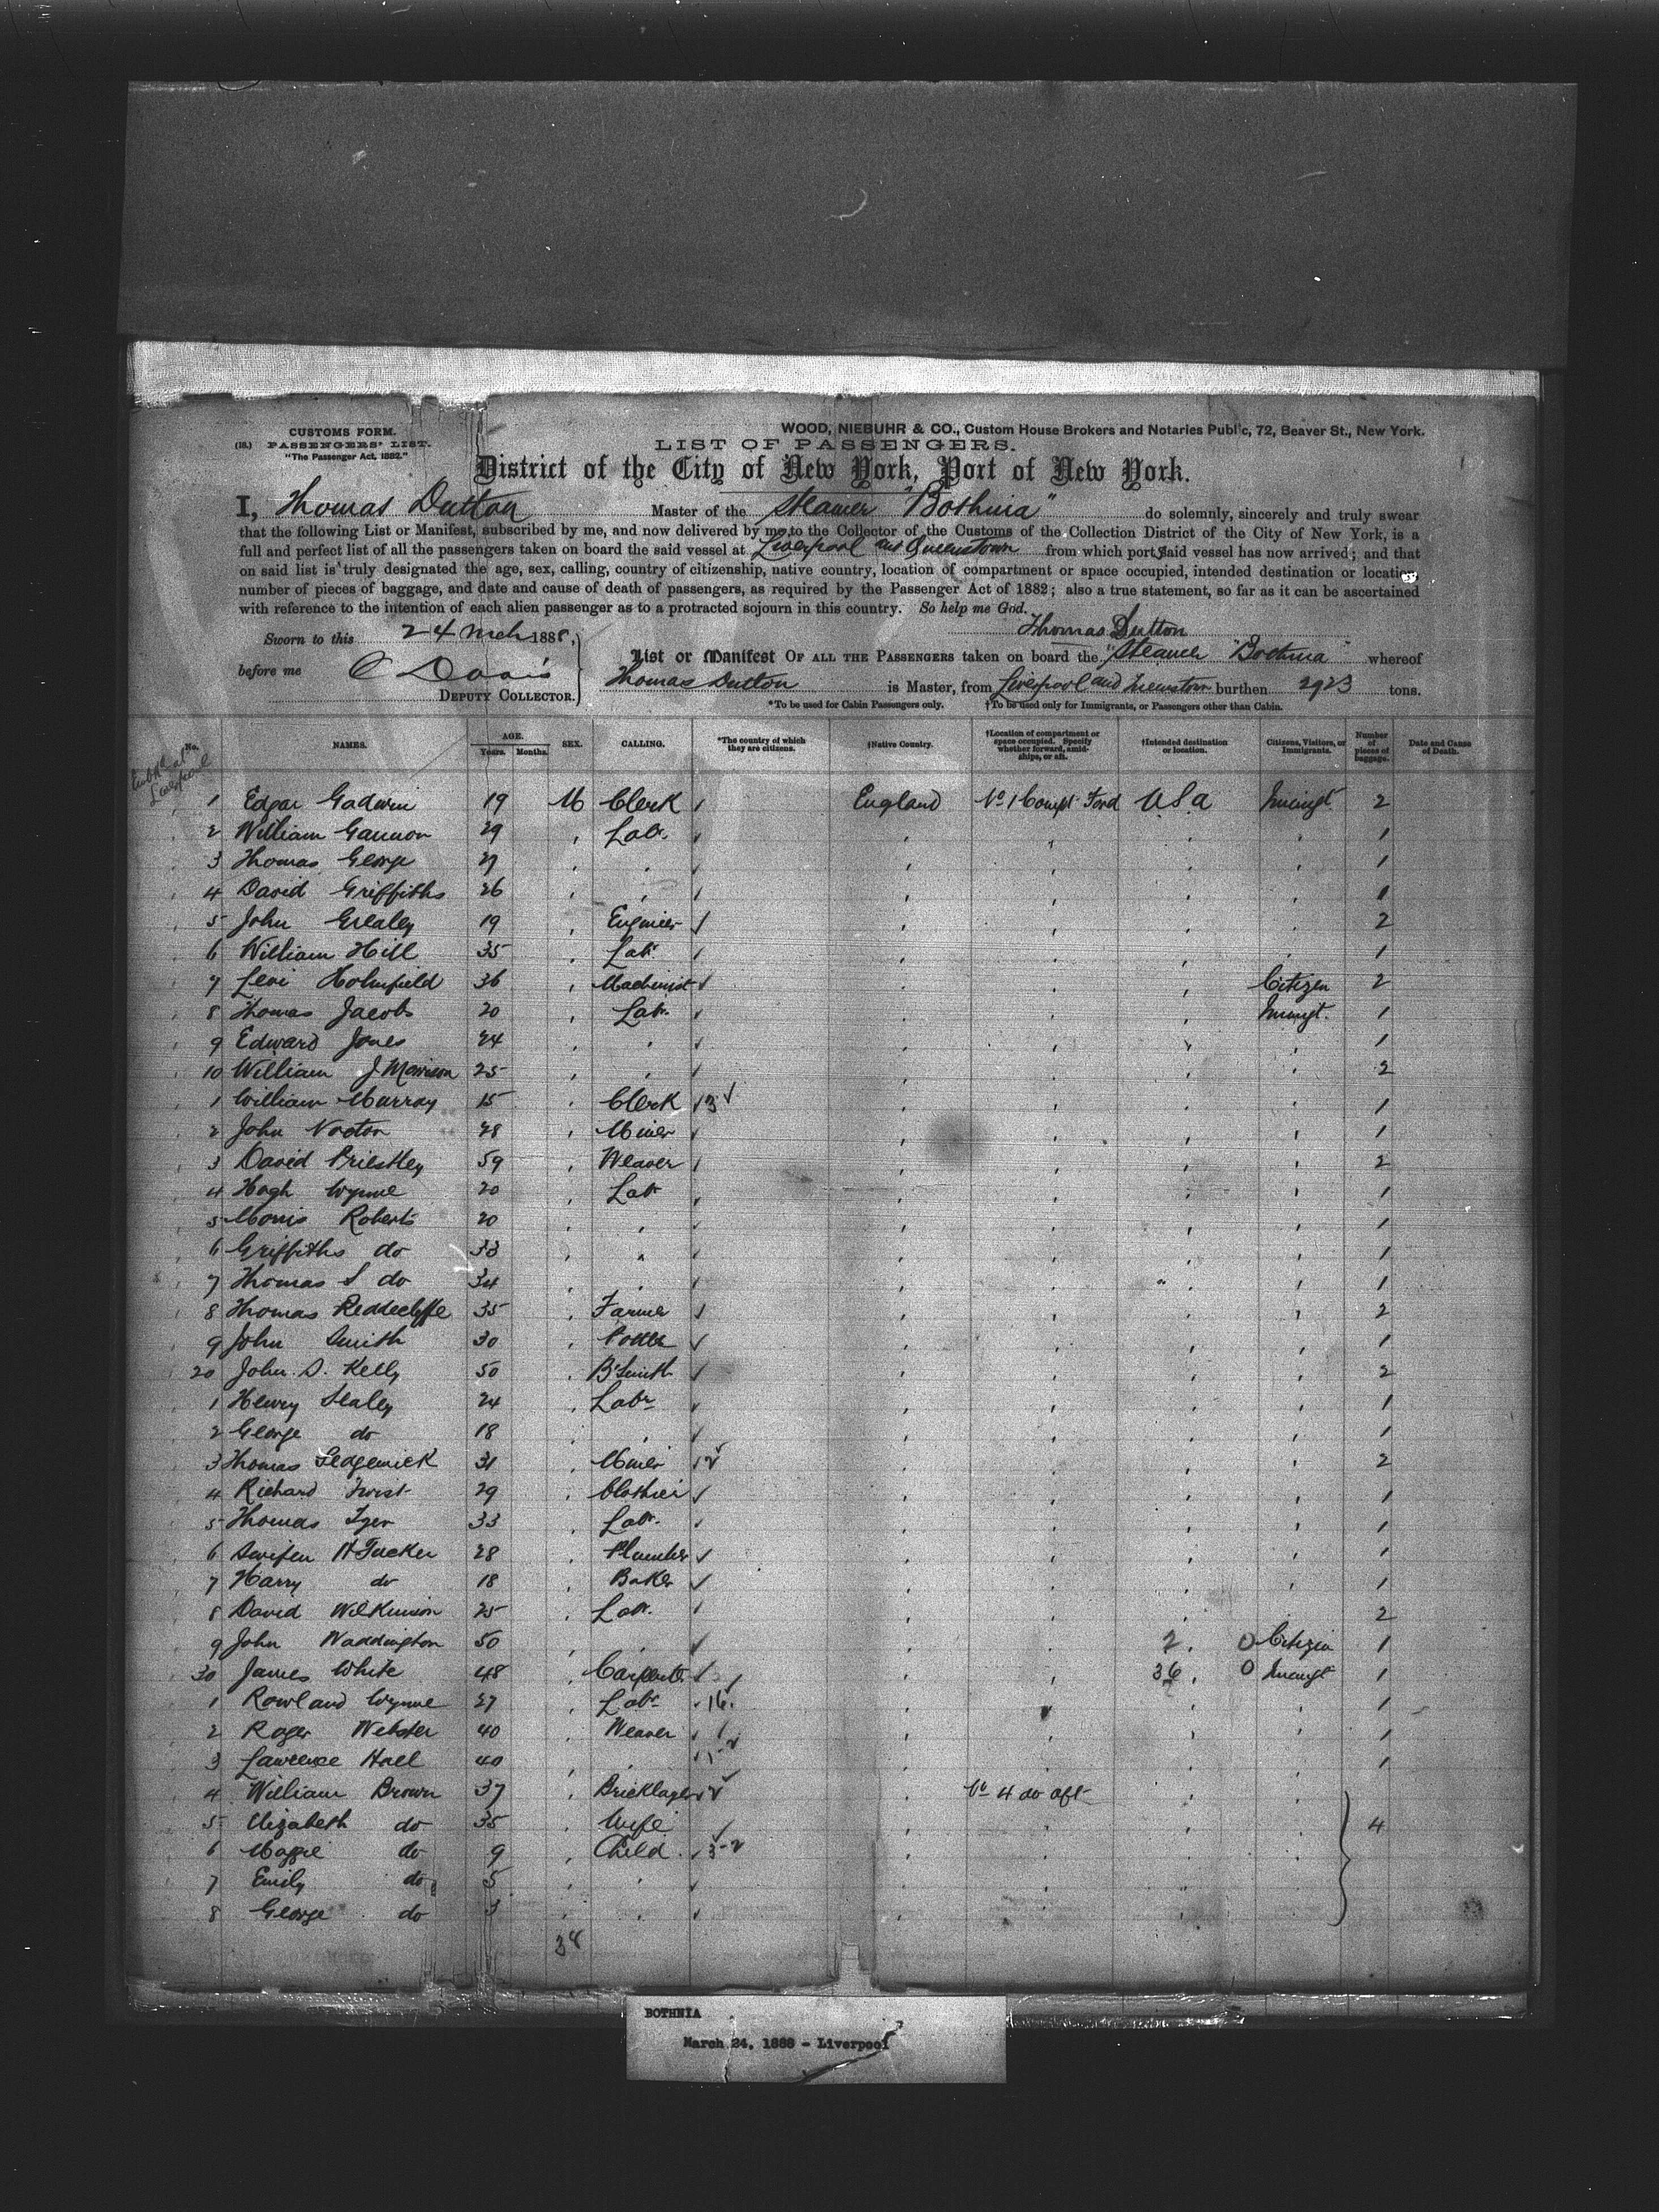 CUSTOMS FORM.
(18.) PASSENGERS' LIST.
"The Passenger Act, 1882."
WOOD, NIEBUHR & CO., Custom House Brokers and Notaries Public, 72, Beaver St., New York.
LIST OF PASSENGERS.
District of the City of New York, Port of New York.
I, Thomas Dutton Master of the Steamer "Bothnia" do solemnly, sincerely and truly swear
that the following List or Manifest, subscribed by me, and now delivered by me to the Collector of the Customs of the Collection District of the City of New York, is a
full and perfect list of all the passengers taken on board the said vessel at Liverpool and Queenstown from which port said vessel has now arrived; and that
on said list is truly designated the age, sex, calling, country of citizenship, native country, location of compartment or space occupied, intended destination or location
number of pieces of baggage, and date and cause of death of passengers, as required by the Passenger Act of 1882; also a true statement, so far as it can be ascertained
with reference to the intention of each alien passenger as to a protracted sojourn in this country. So help me God.
Sworn to this 24 Mch 1888, Thomas Dutton
before me C Davis
DEPUTY COLLECTOR.
List or Manifest OF ALL THE PASSENGERS taken on board the "Steamer "Bothnia" whereof
Thomas Dutton is Master, from Liverpool and burthen 2923 tons.
*To be used for Cabin Passengers only. †To be used only for Immigrants, or Passengers other than Cabin.
No. NAMES. AGE. Years. Months. SEX. CALLING. *The country of which they are citizens. †Native Country. †Location of compartment or space occupied. Specify whether forward, amidships, or aft. †Intended destination or location. Citizens, Visitors, or Immigrants. Number of pieces of baggage. Date and Cause of Death.
Liverpool
1 Edgar Gadwin 19 M Clerk England No 1 Compt Ford USA Immigt 2
2 William Gannon 29 Labr. 1
3 Thomas George 27 1
4 David Griffiths 26 1
5 John Grealey 19 Engineer 2
6 William Hill 35 Labr. 1
7 Levi Holmfield 36 Machinist Citizen 2
8 Thomas Jacobs 20 Labr. Immigt. 1
9 Edward Jones 24 1
10 William J Morrison 25 2
1 William Murray 15 Clerk 13 1
2 John Norton 28 Miner 1
3 David Priestley 59 Weaver 2
4 Hugh Wynne 20 Labr 1
5 Morris Roberts 20 1
6 Griffiths do 33 1
7 Thomas S do 34 1
8 Thomas Reddecliffe 35 Farmer 2
9 John Smith 30 Potter 1
20 John S. Kelly 50 B'Smith 2
1 Henry Sealey 24 Labr 1
2 George do 18 1
3 Thomas Sedgewick 31 Miner 2
4 Richard Twist 29 Clothier 1
5 Thomas Tyer 33 Labr. 1
6 H Tucker 28 Plumber 1
7 Harry do 18 Baker 1
8 David Wilkinson 25 Labr. 2
9 John Waddington 50 2. 0 Citizen 1
30 James White 48 Carpentr. 36 0 Immigt 1
1 Rowland Wynne 27 Labr 16. 1
2 Roger Webster 40 Weaver 1
3 Lawrence Hall 40 1
4 William Brown 37 Bricklayer No 4 do aft
5 Elizabeth do 35 Wife 4
6 Maggie do 9 Child
7 Emily do 5
8 George do 3
38
BOTHNIA
March 24, 1888 - Liverpool